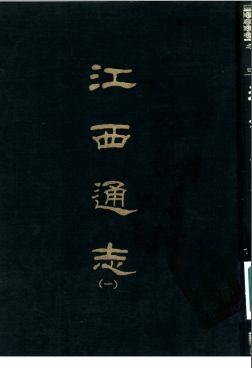 江西通志
(一)